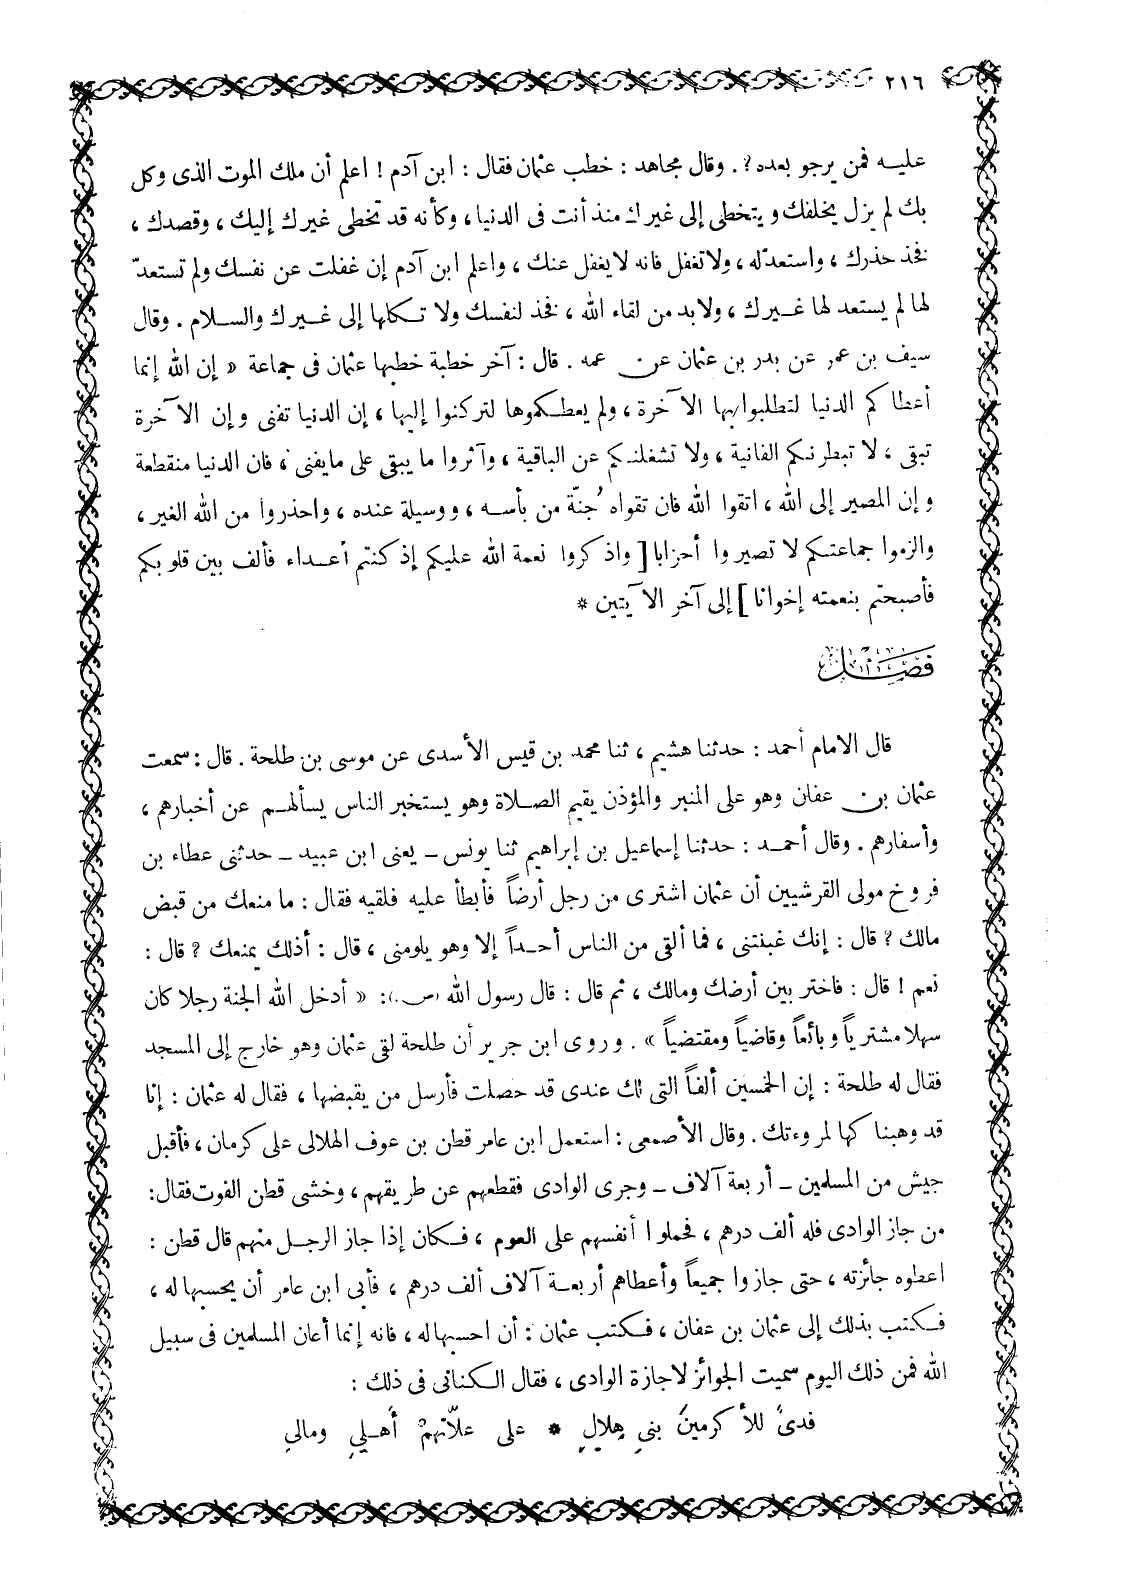 ٢١٦
عليه فمن يرجو بعده؟. وقال مجاهد : خطب عثمان فقال : ابن آدم ! اعلم أن ملك الموت الذى وكل
بك لم يزل يخلفك ويتخطى إلى غيرك منذ أنت فى الدنيا، وكأنه قد تخطى غيرك إليك، وقصدك،
فخذ حذرك، واستعد له، ولا تغفل فانه لا يغفل عنك، واعلم ابن آدم إن غفلت عن نفسك ولم تستعدّ
لها لم يستعد لها غيرك، ولابد من لقاء الله، فخذ لنفسك ولا تكلها إلى غيرك والسلام. وقال
سيف بن عمر عن بدر بن عثمان عن عمه. قال : آخر خطبة خطبها عثمان فى جماعة « إن الله إنما
أعطاكم الدنيا لتطلبوا بها الآخرة، ولم يعطكموها لتركنوا إليها، إن الدنيا تفنى وإن الآخرة
تبقى، لا تبطرنكم الفانية، ولا تشغلنكم عن الباقية، وآثروا ما يبقى على مايفنى، فان الدنيا منقطعة
وإن المصير إلى الله، اتقوا الله فان تقواه جُنّة من بأسه، ووسيلة عنده، واحذروا من الله الغير،
والزموا جماعتكم لا تصيروا أحزابا [ واذكروا نعمة الله عليكم إذ كنتم أعداء فألف بين قلوبكم
فأصبحتم بنعمته إخوانا ] إلى آخر الآيتين *
فصل
قال الامام أحمد : حدثنا هشيم، ثنا محمد بن قيس الأسدى عن موسى بن طلحة. قال : سمعت
عثمان بن عفان وهو على المنبر والمؤذن يقيم الصلاة وهو يستخبر الناس يسألهم عن أخبارهم،
وأسفارهم. وقال أحمد : حدثنا إسماعيل بن إبراهيم ثنا يونس ــ يعنى ابن عبيد ــ حدثنى عطاء بن
فروخ مولى القرشيين أن عثمان اشترى من رجل أرضاً فأبطأ عليه فلقيه فقال : ما منعك من قبض
مالك؟ قال : إنك غبنتنى، فما ألقى من الناس أحداً إلا وهو يلومنى، قال : أذلك يمنعك؟ قال :
نعم ! قال : فاختر بين أرضك ومالك، ثم قال : قال رسول الله (ص.): « أدخل الله الجنة رجلا كان
سهلا مشترياً وبائعاً وقاضياً ومقتضياً ». وروى ابن جرير أن طلحة لقى عثمان وهو خارج إلى المسجد
فقال له طلحة : إن الخمسين ألفاً التى لك عندى قد حصلت فأرسل من يقبضها، فقال له عثمان : إنا
قد وهبناكها لمروءتك. وقال الأصمعى : استعمل ابن عامر قطن بن عوف الهلالى على كرمان، فأقبل
جيش من المسلمين ــ أربعة آلاف ــ وجرى الوادى فقطعهم عن طريقهم، وخشى قطن الفوت فقال:
من جاز الوادى فله ألف درهم، فحملوا أنفسهم على العوم، فكان إذا جاز الرجل منهم قال قطن :
اعطوه جائزته، حتى جازوا جميعاً وأعطاهم أربعة آلاف ألف درهم، فأبى ابن عامر أن يحسبها له،
فكتب بذلك إلى عثمان بن عفان، فكتب عثمان : أن احسبها له، فانه إنما أعان المسلمين فى سبيل
الله فمن ذلك اليوم سميت الجوائز لاجازة الوادى، فقال الكنانى فى ذلك :
فدىً للأكرمينَ بنى هِلالٍ * على علاّتهمْ أهلي ومالي